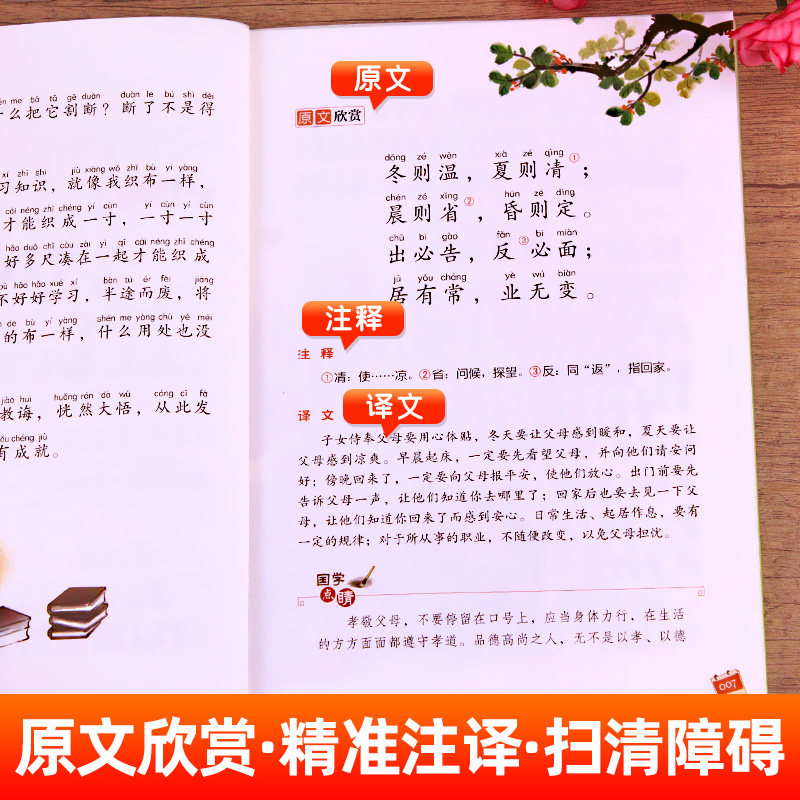 me bǎ tā gē duàn duàn le bú shì děi
什么把它割断？断了不是得
xí zhī shi jiù xiàng wǒ zhī bù yí yàng
习知识，就像我织布一样，
cái néng zhī chéng yí cùn yí cùn yí cùn
才能织成一寸，一寸一寸
hǎo duō chǐ còu zài yì qǐ cái néng zhī chéng
好多尺凑在一起才能织成
bù hǎo hǎo xué xí bàn tú ér fèi jiāng
不好好学习，半途而废，将
de bù yí yàng shén me yòng chù yě méi
的布一样，什么用处也没
jiào huì huǎng rán dà wù cóng cǐ fā
教诲，恍然大悟，从此发
yǒu chéng jiù
有成就。
原文
原文欣赏
dōng zé wēn xià zé qìng
冬则温，夏则凊①；
chén zé xǐng hūn zé dìng
晨则省②，昏则定。
chū bì gào fǎn bì miàn
出必告，反③必面；
jū yǒu cháng yè wú biàn
居有常，业无变。
注释
注释
①凊：使……凉。②省：问候，探望。③反：同“返”，指回家。
译文
译文
子女侍奉父母要用心体贴，冬天要让父母感到暖和，夏天要让
父母感到凉爽。早晨起床，一定要先看望父母，并向他们请安问
好；傍晚回来了，一定要向父母报平安，使他们放心。出门前要先
告诉父母一声，让他们知道你去哪里了；回家后也要去见一下父
母，让他们知道你回来了而感到安心。日常生活、起居作息，要有
一定的规律；对于所从事的职业，不随便改变，以免父母担忧。
国学
点睛
孝敬父母，不要停留在口号上，应当身体力行，在生活
的方方面面都遵守孝道。品德高尚之人，无不是以孝、以德
007
原文欣赏·精准注译·扫清障碍